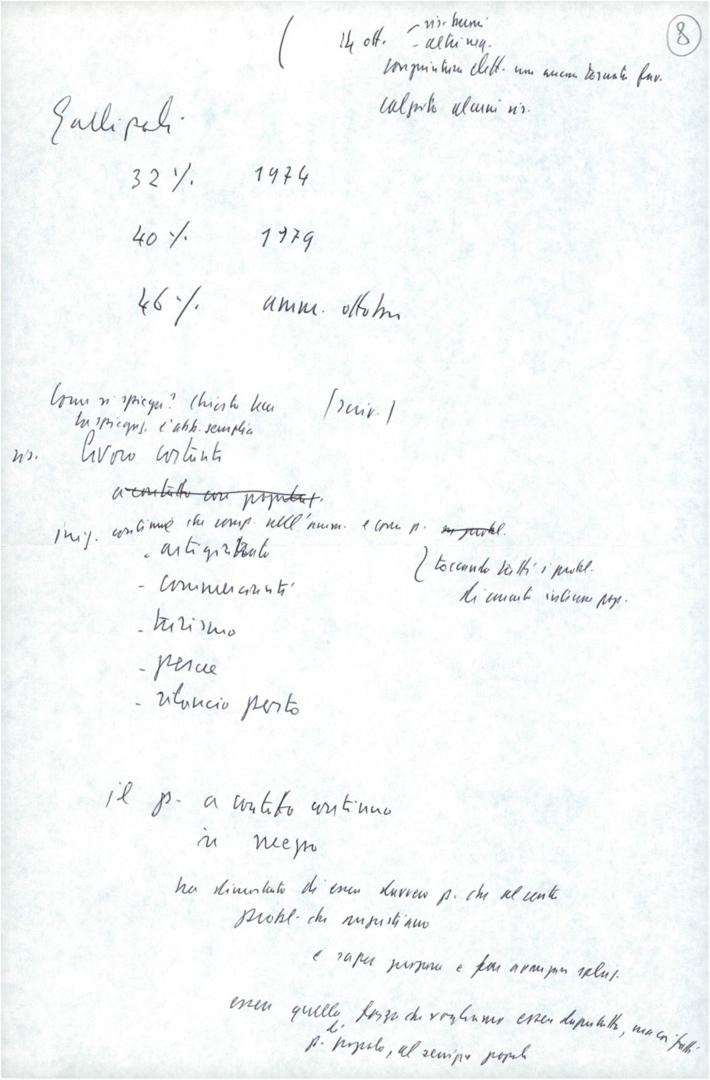 8
14 ott. - ris. buoni
- altri neg.
congiuntura elett. non ancora tornata fav.
calpesto alcuni ris.
Gallipoli
32 % 1974
40 % 1979
46 % amm. ottobre
Come si spiega? chiesto
la spiegaz. è abb. semplice
ris. lavoro costante
a contatto con popolaz.
iniz. continue che comp. nell'amm. e come p.
- artigianato
- commercianti
- turismo
- pesca
- rilancio porto
toccando tutti i probl.
insieme pop.
il p. a contatto continuo
in mezzo
ha dimostrato di essere davvero p. che al centro
probl. che angustiano
e saper proporre e far avanzare soluz.
essere quella forza che vogliamo essere dappertutto, ma coi fatti
p. di popolo, al servizio popolo